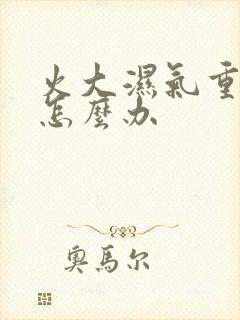 火大濕氣重
怎麼办
奧馬尔